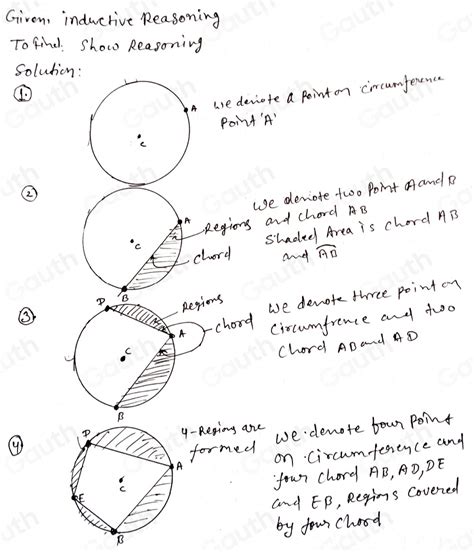 Given, inductive Reasoning
To find: Show Reasoning
Solution:
1.
A
C
we denote a point on circumference
Point 'A'
2
A
C
B
Regions
chord
we denote two Point A and B
and chord AB
Shaded Area is chord AB
and AB
3.
D
A
C
B
Regions
chord
we denote three point on
Circumfrence and two
Chord AB and AD
4
D
A
E
C
B
4-Regions are
formed
we denote four Point
on Circumference and
four chord AB, AD, DE
and EB, Regions covered
by four chord
Gauth